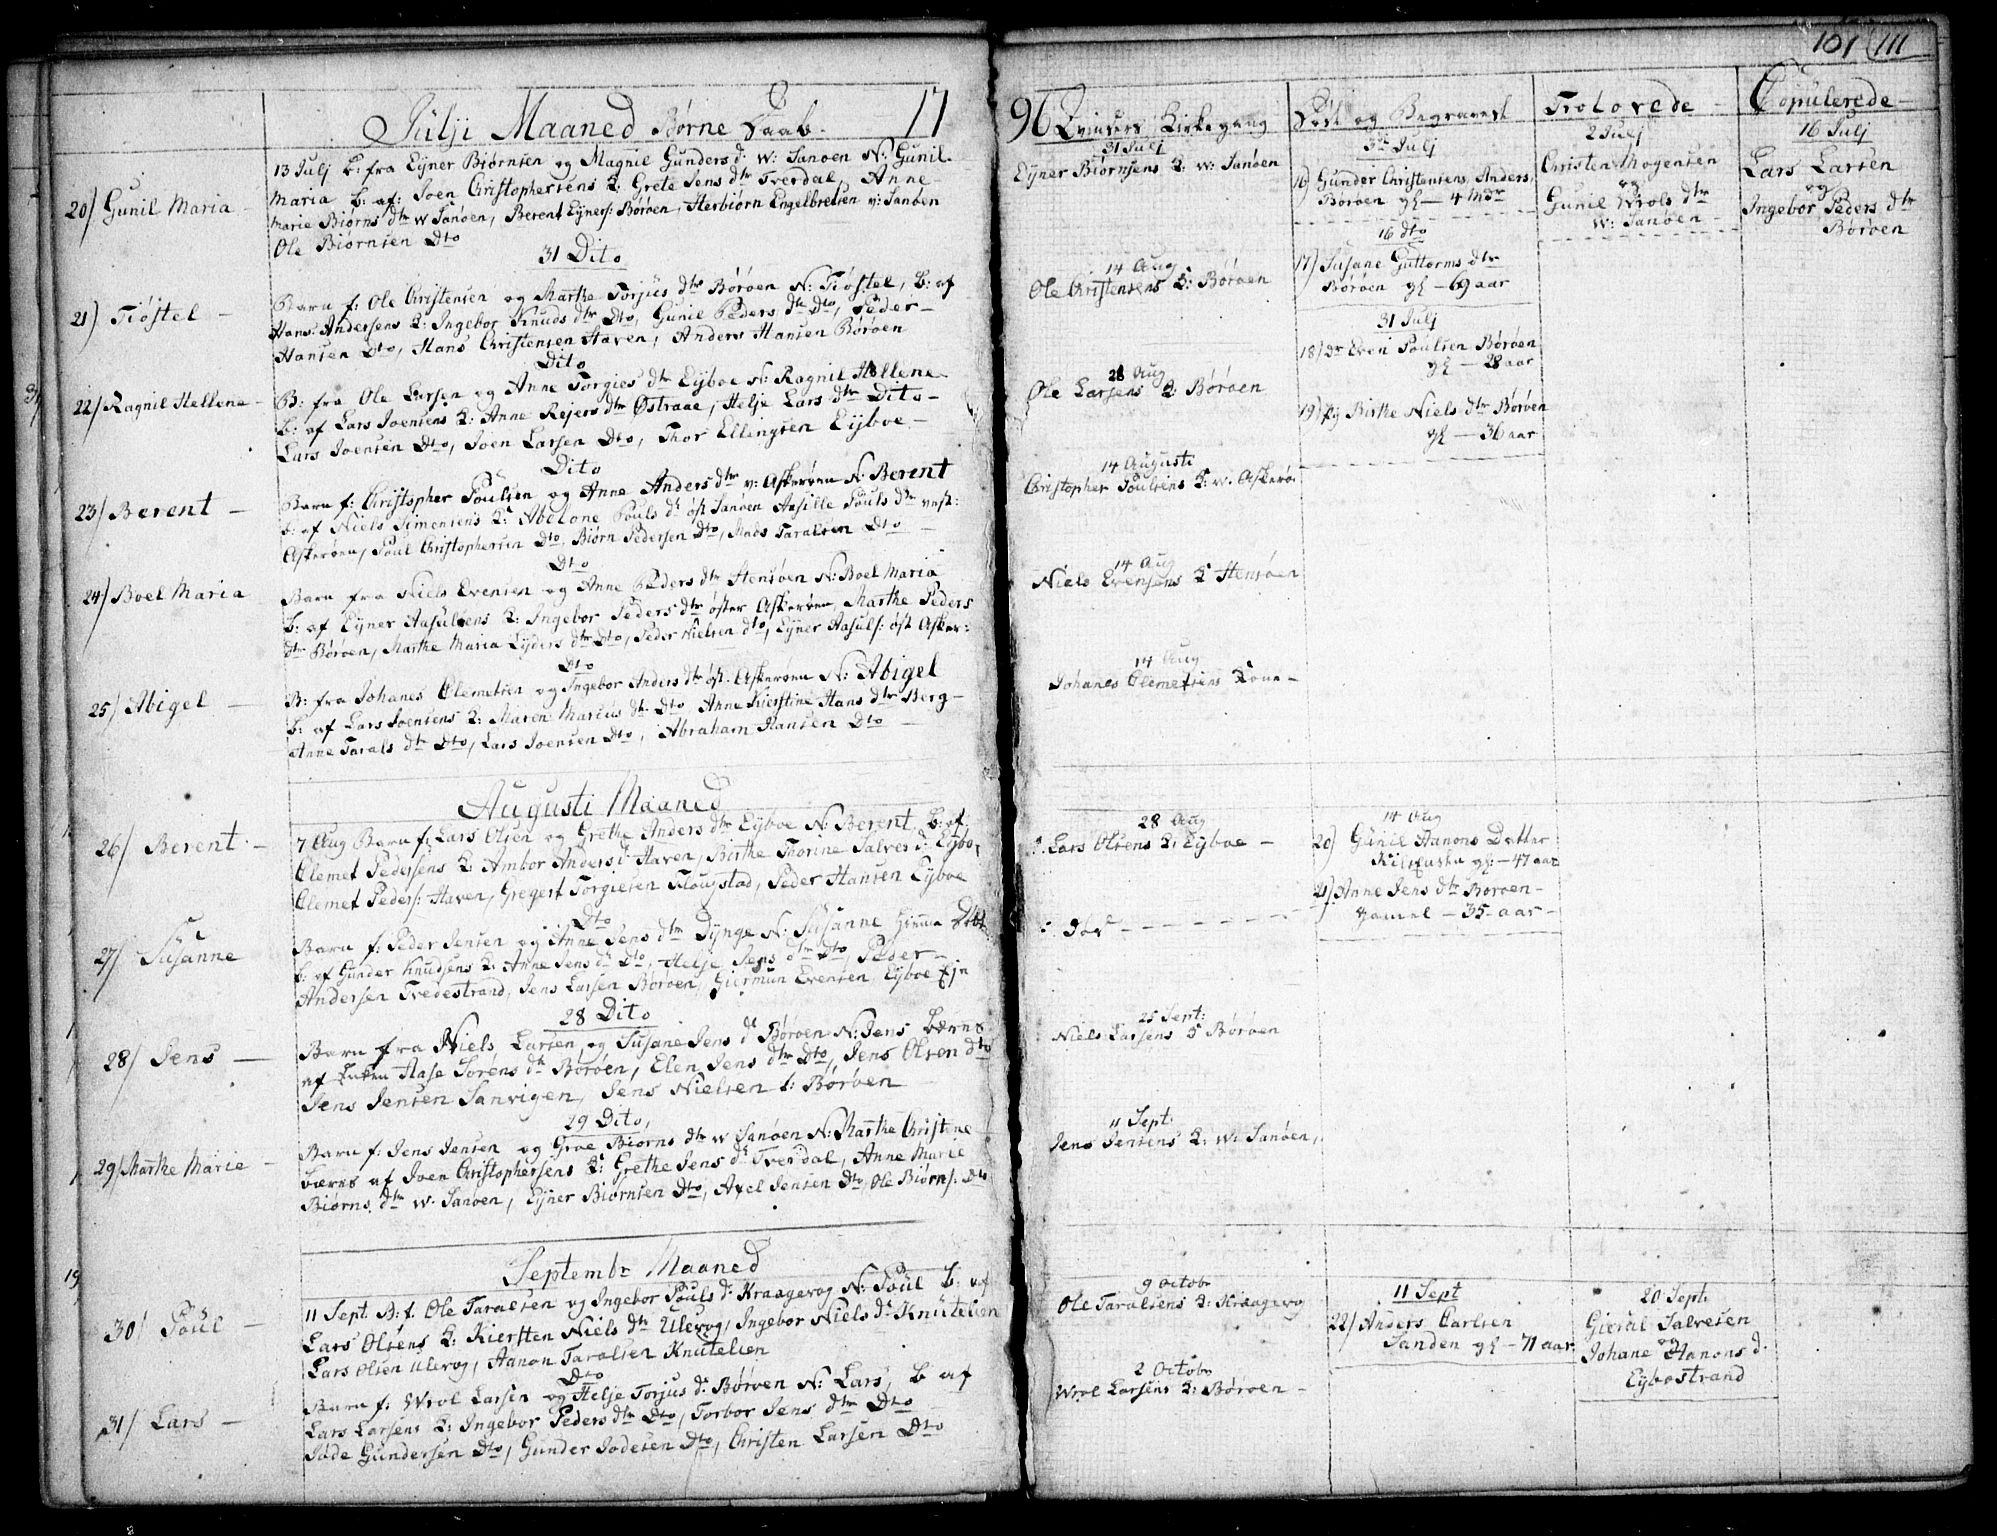 Julji Maaned Børne Daab. 17
20) Gunil Maria
13 Julj B: fra Eyner Biørnsen og Magnil Gunders d: w: Sanøen N: Gunil
Maria b: af: Joen Christophersens K: Grete Jens dtr Tverdal, Anne
Marie Biørns dtr w Sanøen, Berent Eyners: Børøen, Herbiørn Engelbretsen v: Sanøen
Ole Biørnsen Dto
31 Dito
21) Tiøstel
Barn f: Ole Christensen og Marthe Torjus dtr Børøen N: Tiøstel, b: af
Hans Andersens K: Ingebor Knuds dtr Dto, Gunil Peders dtr Dto, Peder
Hansen Dto, Hans Christensen Haven, Anders Hansen Børøen
Dito
22) Ragnil Hellene
B: fra Ole Larsen og Anne Torgies dtr Eyboe N: Ragnil Hellene
b: af Lars Joensens K: Anne Rejers dtr Østraae, Helje Lars dtr Dito
Lars Joensen Dto, Joen Larsen Dto, Thor Ellingsen Eyboe
Dito
23) Berent
Barn f: Christopher Poulsen og Anne Anders dtr v: Askerøen N: Berent
b: af Niels Simensens K: Abelone Pouls d: øst Sanøen Aasille Pouls dtr vest:
Askerøen, Poul Christophersen Dto, Biørn Pedersen Dto, Mads Taralsen Dto
Dto
24) Boel Maria
Barn fra Niels Evensen og Anne Peders dtr Stensøen N: Boel Maria
b: af Eyner Aasulsens K: Ingebor Peders dtr øster Askerøen, Marthe Peders
dtr Børøen, Marthe Maria Eyders dtr Dto, Peder Nielsen dto, Eyner Aasuls: øst Asker:
Dto
25) Abigel
B: fra Johanes Clemetsen og Ingebor Anders dtr øst. Askerøen N: Abigel
b: af Lars Joensens K: Maren Marcus dtr Dto Anne Kierstine Hans dtr Berg
Anne Tarals dtr Dto, Lars Joensen Dto, Abraham Hansen Dto
Augusti Maaned
26) Berent
7 Aug Barn f: Lars Olsen og Grethe Anders dtr Eyboe N: Berent b: af
Clemet Pedersens K: Ambor Anders d: Haven, Birthe Thorine Salves d: Eyboe
Clemet Peders: Haven, Gregert Torgiesen Flougstad, Peder Hansen Eyboe
Dto
27) Susanne
Barn f: Peder Jensen og Anne Jens dtr Dynge N: Susanne
b: af Gunder Knudsens K: Anne Jens dtr Dto, Helje Jens dtr Dto, Peder
Andersen Tvedestrand, Jens Larsen Børøen, Giermun Evensen Eyboe
28 Dito
28) Jens
Barn fra Niels Larsen og Susane Jens d: Børøen N: Jens bærne
af Aase Sørens dtr Børøen, Elen Jens dtr Dto, Jens Olsen dto
Jens Jensen Sanvigen, Jens Nielsen i: Børøen
29 Dito,
29) Marthe Marie
Barn f: Jens Jensen og Groe Biørns dtr w Sanøen N: Marthe Christine
bærns af Joen Christophersens K: Grethe Jens d: Tverdal, Anne Marie
Biørns dtr w. Sanøen, Eyner Biørnsen Dto, Axel Jensen Dto, Ole Biørns: Dto
Septembr Maaned
30) Poul
11 Sept B: f. Ole Taralsen og Ingebor Pouls d: Kraagevog N: Poul b: af
Lars Olsens K: Kiersten Niels dtr Ulevog, Ingebor Niels d: Knutelien
Lars Olsen Ulevog, Aanon Taralsen Knutelien
Dto
31) Lars
Barn f: Wrol Larsen og Helje Torjus d: Børøen N: Lars, b af
Lars Larsens K: Ingebor Peders dtr Dto, Torbor Jens dtr Dto
Jode Gundersen Dto, Gunder Jodesen Dto, Christen Larsen Dto
101 (111
96 Qvinders Kirkegang
31 Julj
Eyner Biørnsens K: w: Sanøen
14 Aug
Ole Christensens K: Børøen
28 Aug
Ole Larsens K: Børøen
14 Augusti
Christopher Poulsens K: w. Askerø
14 Aug
Niels Evensens K: Stensøen
14 Aug
Johanes Clemetsens Kone
28 Aug
Lars Olsens K: Eyboe
25 Sept:
Niels Larsens K Børøen
11 Sept:
Jens Jensens K: w: Sanøen,
9 Octobr
Ole Taralsens K: Kraagevog
2 Octobr
Wrol Larsens K: Børøen
Død og Begravet
3de Julj
16) Gunder Christensens Anders
Børøen gl — 4 Mdr
16 dto
17) Susane Guttorms dtr
Børøen gl — 69 aar
31 Julj
18) Dr Even Poulsen Børøen
gl — 28 aar
19) Birthe Niels dtr Børøen
gl — 36 aar
14 Aug
20) Gunil Aanons Datter
gl: — 47 aar
21) Anne Jens dtr Børøen
gamel — 35 aar
11 Sept
22) Anders Carlsen
Sanden gl — 71 aar
Trolovede
2 Julj
Christen Mogensen
og
Gunil Wrols dtr
W: Sanøen
20 Sept:
Gierul Salvesen
og
Johane Aanons d.
Eybostrand
Copulerede
16 Julj
Lars Larsen
og
Ingebor Peders dtr
Børøen